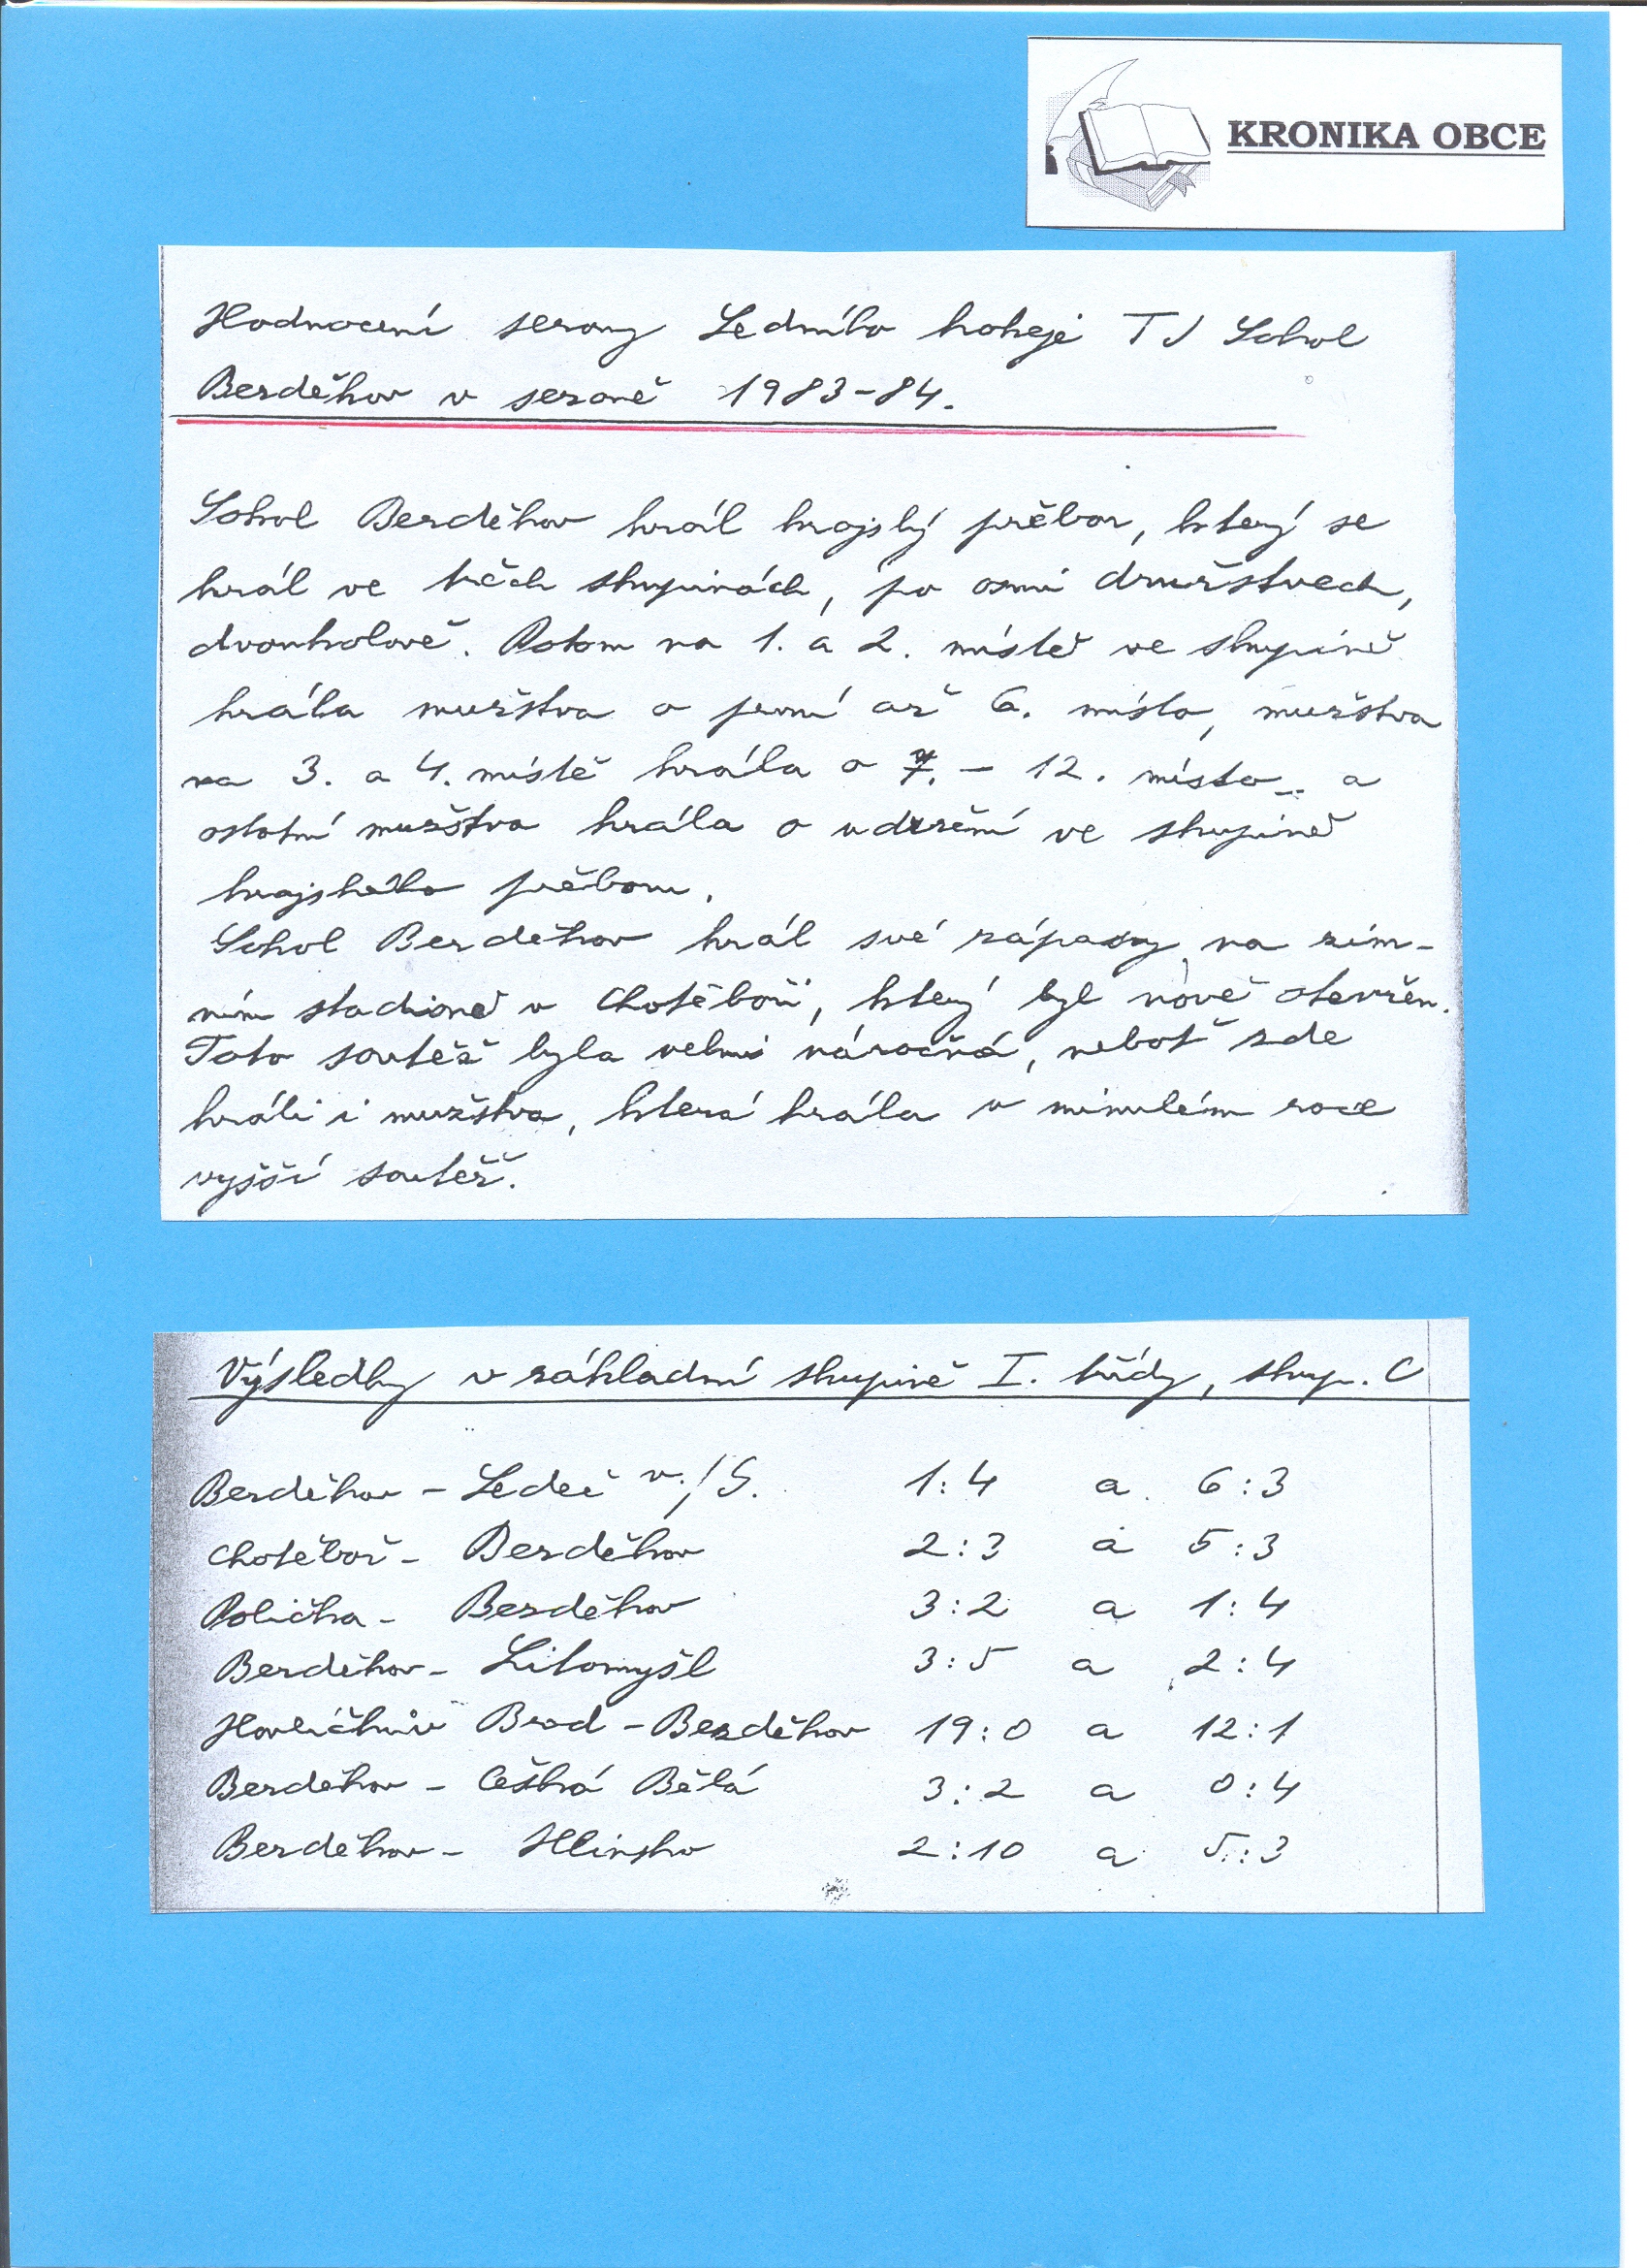 KRONIKA OBCE
Hodnocení sezony Ledního hokeje TJ Sokol
Bezděkov v sezoně 1983-84.
Sokol Bezděkov hrál krajský přebor, který se
hrál ve třech skupinách, po osmi družstvech,
dvoukolově. Potom na 1. a 2. místě ve skupině
hrála mužstva o první až 6. místo, mužstva
na 3. a 4. místě hrála o 7. - 12. místo a
ostatní mužstva hrála o udržení ve skupině
krajského přeboru.
Sokol Bezděkov hrál své zápasy na zim-
ním stadioně v Chotěboři, který byl nově otevřen.
Tato soutěž byla velmi náročná, neboť zde
hráli i mužstva, která hrála v minulém roce
vyšší soutěž.
Výsledky v základní skupině I. třídy, skup. C
Bezděkov - Ledeč n./S. 1:4 a 6:3
Chotěboř - Bezděkov 2:3 a 5:3
Polička - Bezděkov 3:2 a 1:4
Bezděkov - Litomyšl 3:5 a 2:4
Havlíčkův Brod - Bezděkov 19:0 a 12:1
Bezděkov - Česká Bělá 3:2 a 0:4
Bezděkov - Hlinsko 2:10 a 5:3